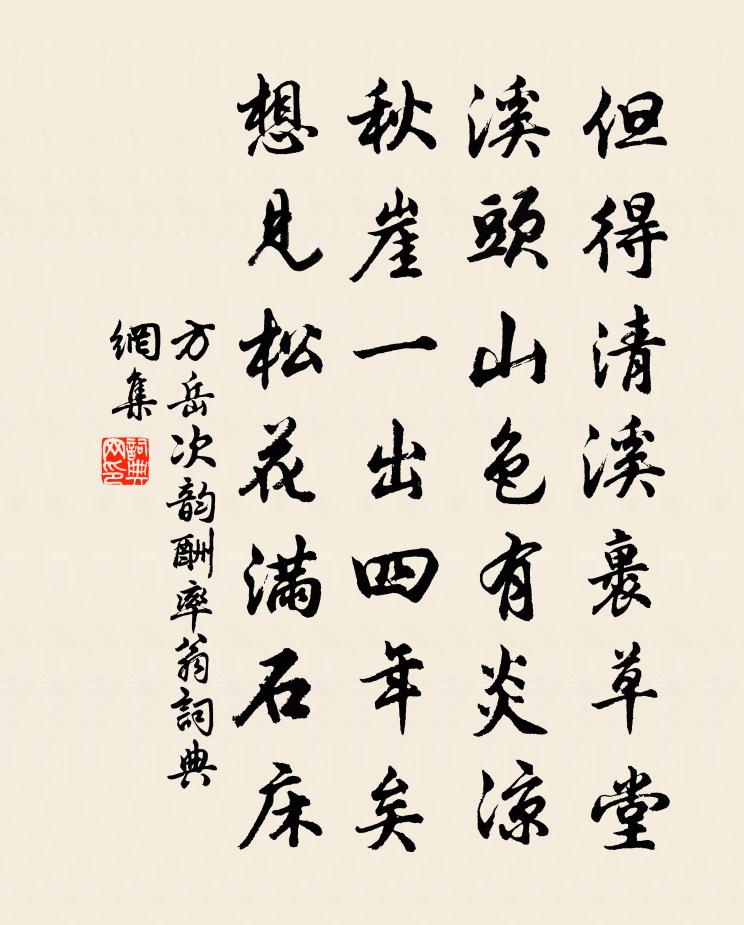 但得清溪裹草堂
溪頭山色有炎涼
秋崖一出四年矣
想見松花滿石床
方岳次韵酬率翁詞典
網集
詞典網印